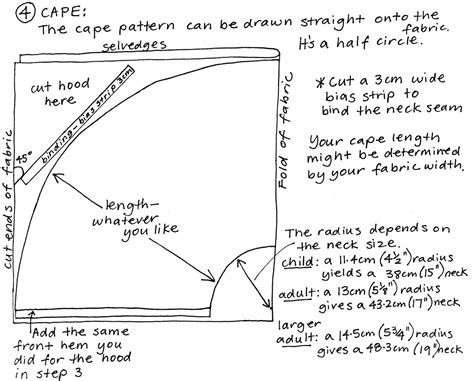 ④ CAPE:
The cape pattern can be drawn straight onto the fabric.
It's a half circle.
selvedges
cut hood
here
binding - bias strip 3cm
45°
cut ends of fabric
Fold of fabric
* Cut a 3cm wide
bias strip to
bind the neck seam
Your cape length
might be determined
by your fabric width.
length-
whatever
you like
The radius depends on
the neck size.
child: a 11.4cm (4½") radius
yields a 38cm (15") neck
adult: a 13cm (5⅛") radius
gives a 43.2cm (17") neck
larger
adult: a 14.5cm (5¾") radius
gives a 48.3cm (19") neck
Add the same
front hem you
did for the hood
in step 3